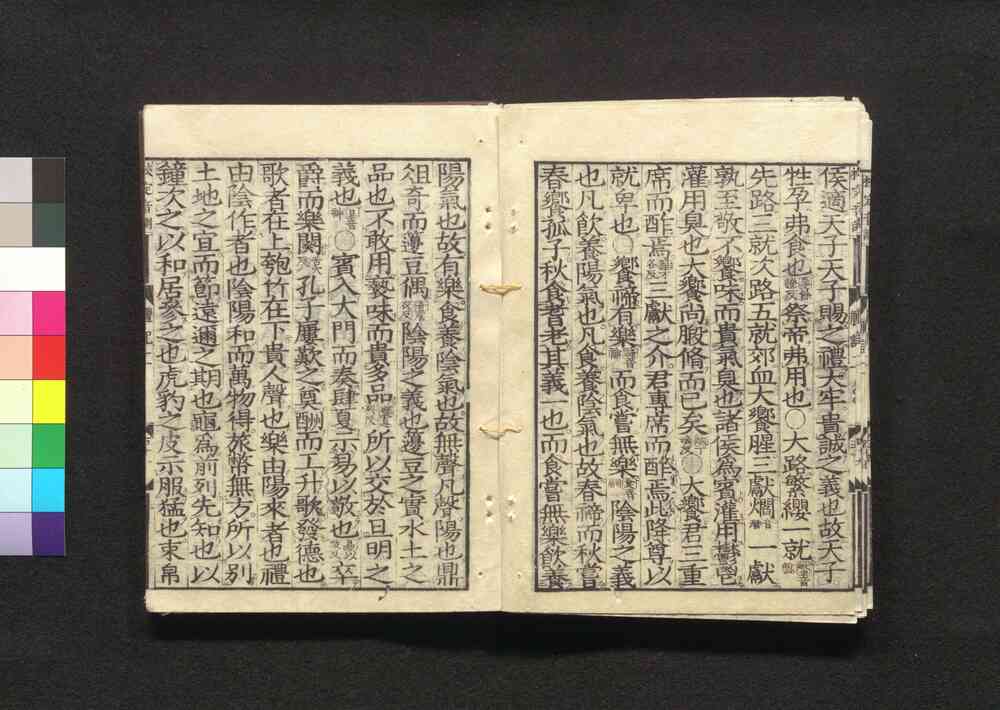 侯適天子天子賜之禮大牢貴誠之義也故天子
牲孕弗食也祭帝弗用也○大路繁纓一就
先路三就次路五就郊血大饗腥三獻爓一獻
孰至敬不饗味而貴氣臭也諸侯爲賓灌用鬱鬯
灌用臭也大饗尚腶脩而已矣○大饗君三重
席而酢焉三獻之介君專席而酢焉此降尊以
就卑也○饗禘有樂而食嘗無樂陰陽之義
也凡飲養陽氣也凡食養陰氣也故春禘而秋嘗
春饗孤子秋食耆老其義一也而食嘗無樂飲養
陽氣也故有樂食養陰氣也故無聲凡聲陽也鼎
俎奇而籩豆偶陰陽之義也籩豆之實水土之
品也不敢用褻味而貴多品所以交於旦明之
義也○賓入大門而奏肆夏示易以敬也卒
爵而樂闋孔子屢歎之奠酬而工升歌發德也
歌者在上匏竹在下貴人聲也樂由陽來者也禮
由陰作者也陰陽和而萬物得旅幣無方所以別
土地之宜而節遠邇之期也龜爲前列先知也以
鐘次之以和居參之也虎豹之皮示服猛也束帛